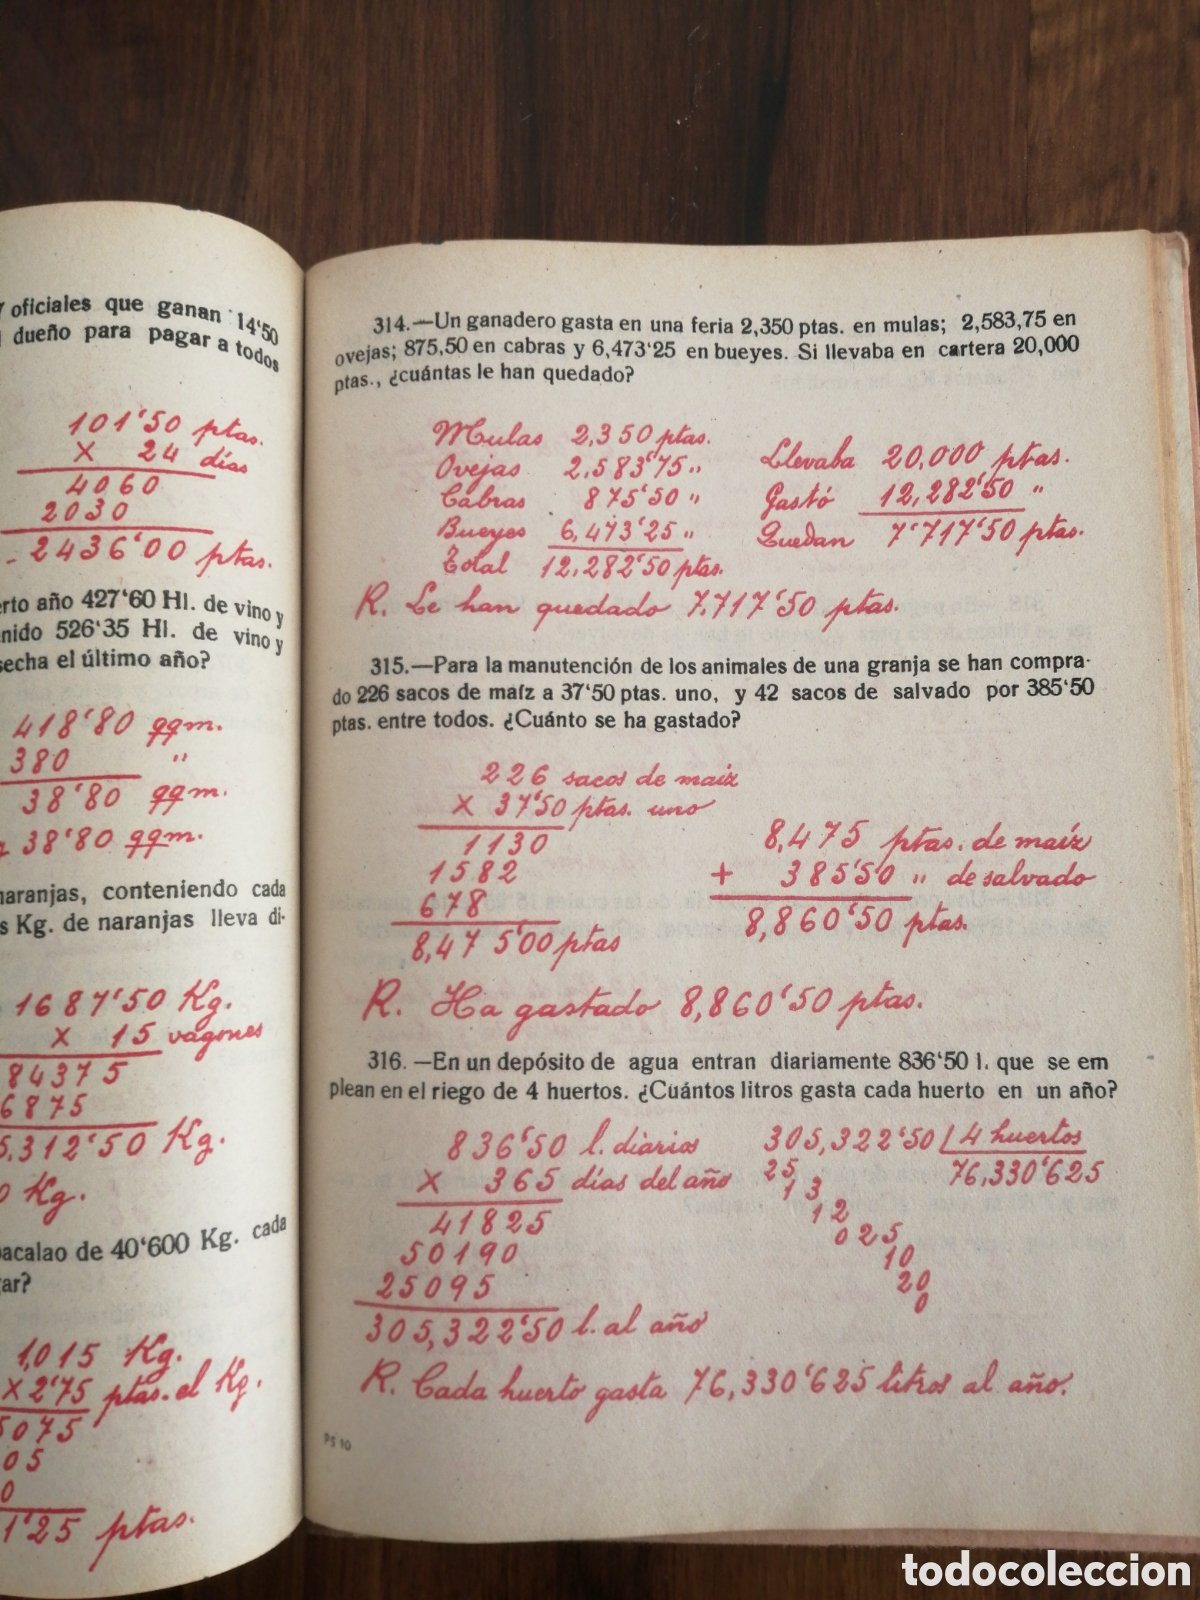 7 oficiales que ganan 14'50
dueño para pagar a todos
101'50 ptas.
X 24 días
4060
2030
2436'00 ptas.
erto año 427'60 Hl. de vino y
nido 526'35 Hl. de vino y
secha el último año?
418'80 qqm.
380 "
38'80 qqm.
38'80 qqm.
naranjas, conteniendo cada
s Kg. de naranjas lleva di-
1687'50 Kg.
X 15 vagones
84375
6875
5,312'50 Kg.
0 Kg.
bacalao de 40'600 Kg. cada
gar?
1,015 Kg.
X 2'75 ptas. el Kg.
5075
05
0
1'25 ptas.
314.—Un ganadero gasta en una feria 2,350 ptas. en mulas; 2,583,75 en
ovejas; 875,50 en cabras y 6,473'25 en bueyes. Si llevaba en cartera 20,000
ptas., ¿cuántas le han quedado?
Mulas 2,350 ptas.
Ovejas 2.583'75 "
Cabras 875'50 "
Bueyes 6,473'25 "
Total 12.282'50 ptas.
Llevaba 20,000 ptas.
Gastó 12,282'50 "
Quedan 7'717'50 ptas.
R. Le han quedado 7.717'50 ptas.
315.—Para la manutención de los animales de una granja se han compra-
do 226 sacos de maíz a 37'50 ptas. uno, y 42 sacos de salvado por 385'50
ptas. entre todos. ¿Cuánto se ha gastado?
226 sacos de maíz
X 37'50 ptas. uno
1130
1582
678
8,475'00 ptas
8,475 ptas. de maíz
+ 385'50 " de salvado
8,860'50 ptas.
R. Ha gastado 8,860'50 ptas.
316.—En un depósito de agua entran diariamente 836'50 l. que se em
plean en el riego de 4 huertos. ¿Cuántos litros gasta cada huerto en un año?
836'50 l. diarios
X 365 días del año
41825
50190
25095
305,322'50 l. al año
305,322'50 4 huertos
25 76,330'625
13
12
025
10
20
0
R. Cada huerto gasta 76,330'625 litros al año.
PS 10
todocoleccion